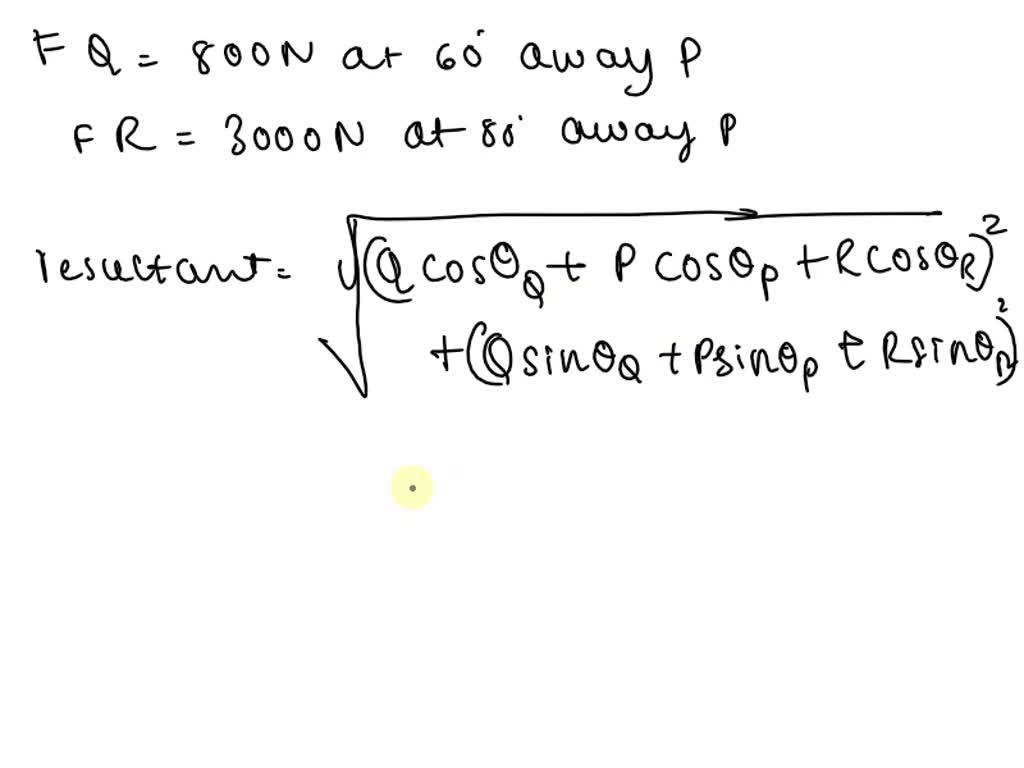 F Q = 800N at 60° away P
F R = 3000N at 80° away P
resultant = √(Q cosθ_Q + P cosθ_P + R cosθ_R)²
+ (Q sinθ_Q + P sinθ_P + R sinθ_R)²